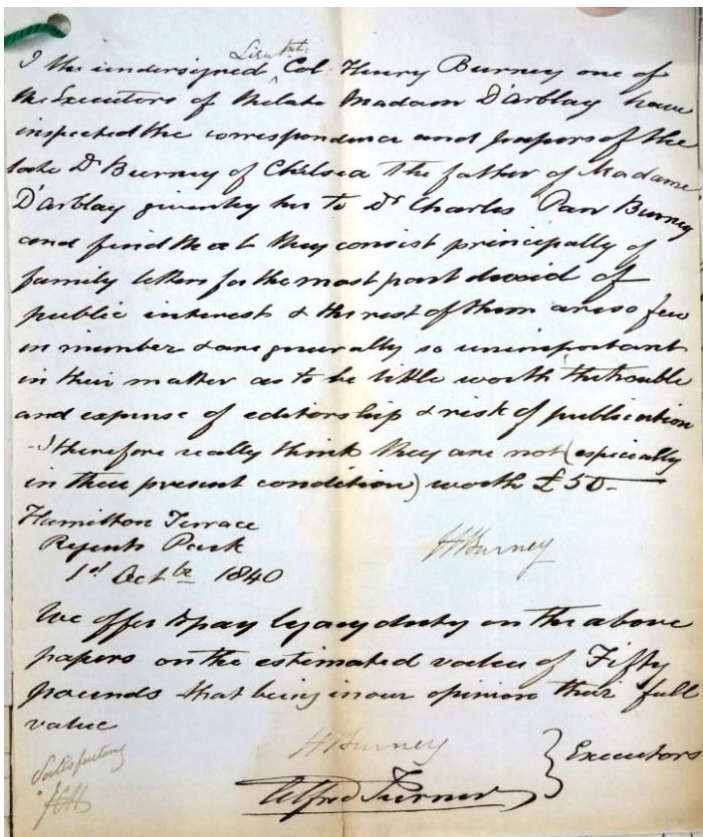 I the undersigned Lieutnt: Col: Henry Burney one of
the Executors of the late Madam D'Arblay have
inspected the correspondence and papers of the
late Dr Burney of Chelsea the father of Madame
D'Arblay given by her to Dr Charles Parr Burney
and find that they consist principally of
family letters for the most part devoid of
public interest & the rest of them are so few
in number & are generally so unimportant
in their matter as to be little worth the trouble
and expense of editorship & risk of publication
I therefore really think they are not (especially
in their present condition) worth £50—
Hamilton Terrace
Regents Park
1st Octbr 1840
HBurney
We offer to pay legacy duty on the above
papers on the estimated value of Fifty
pounds that being in our opinion their full
value
HBurney
Alfred Turner
Executors
Satisfactory